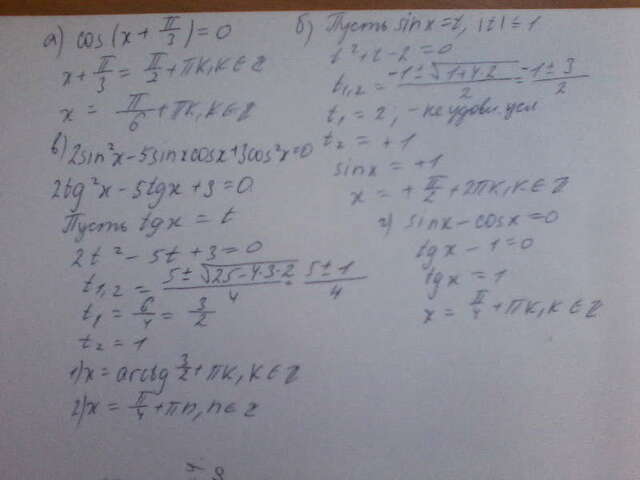 а) cos(x + π/3) = 0
x + π/3 = π/2 + πk, k ∈ Z
x = π/6 + πk, k ∈ Z
б) Пусть sinx = t, |t| ≤ 1
t² + t - 2 = 0
t₁,₂ = (-1 ± √(1+4·2))/2 = (-1 ± 3)/2
t₁ = 2; - не удовл. усл
t₂ = +1
sinx = +1
x = + π/2 + 2πk, k ∈ Z
в) 2sin²x - 5sinxcosx + 3cos²x = 0
2tg²x - 5tgx + 3 = 0
Пусть tgx = t
2t² - 5t + 3 = 0
t₁,₂ = (5 ± √(25-4·3·2))/4 = (5 ± 1)/4
t₁ = 6/4 = 3/2
t₂ = 1
1) x = arctg 3/2 + πk, k ∈ Z
2) x = π/4 + πn, n ∈ Z
г) sinx - cosx = 0
tgx - 1 = 0
tgx = 1
x = π/4 + πk, k ∈ Z